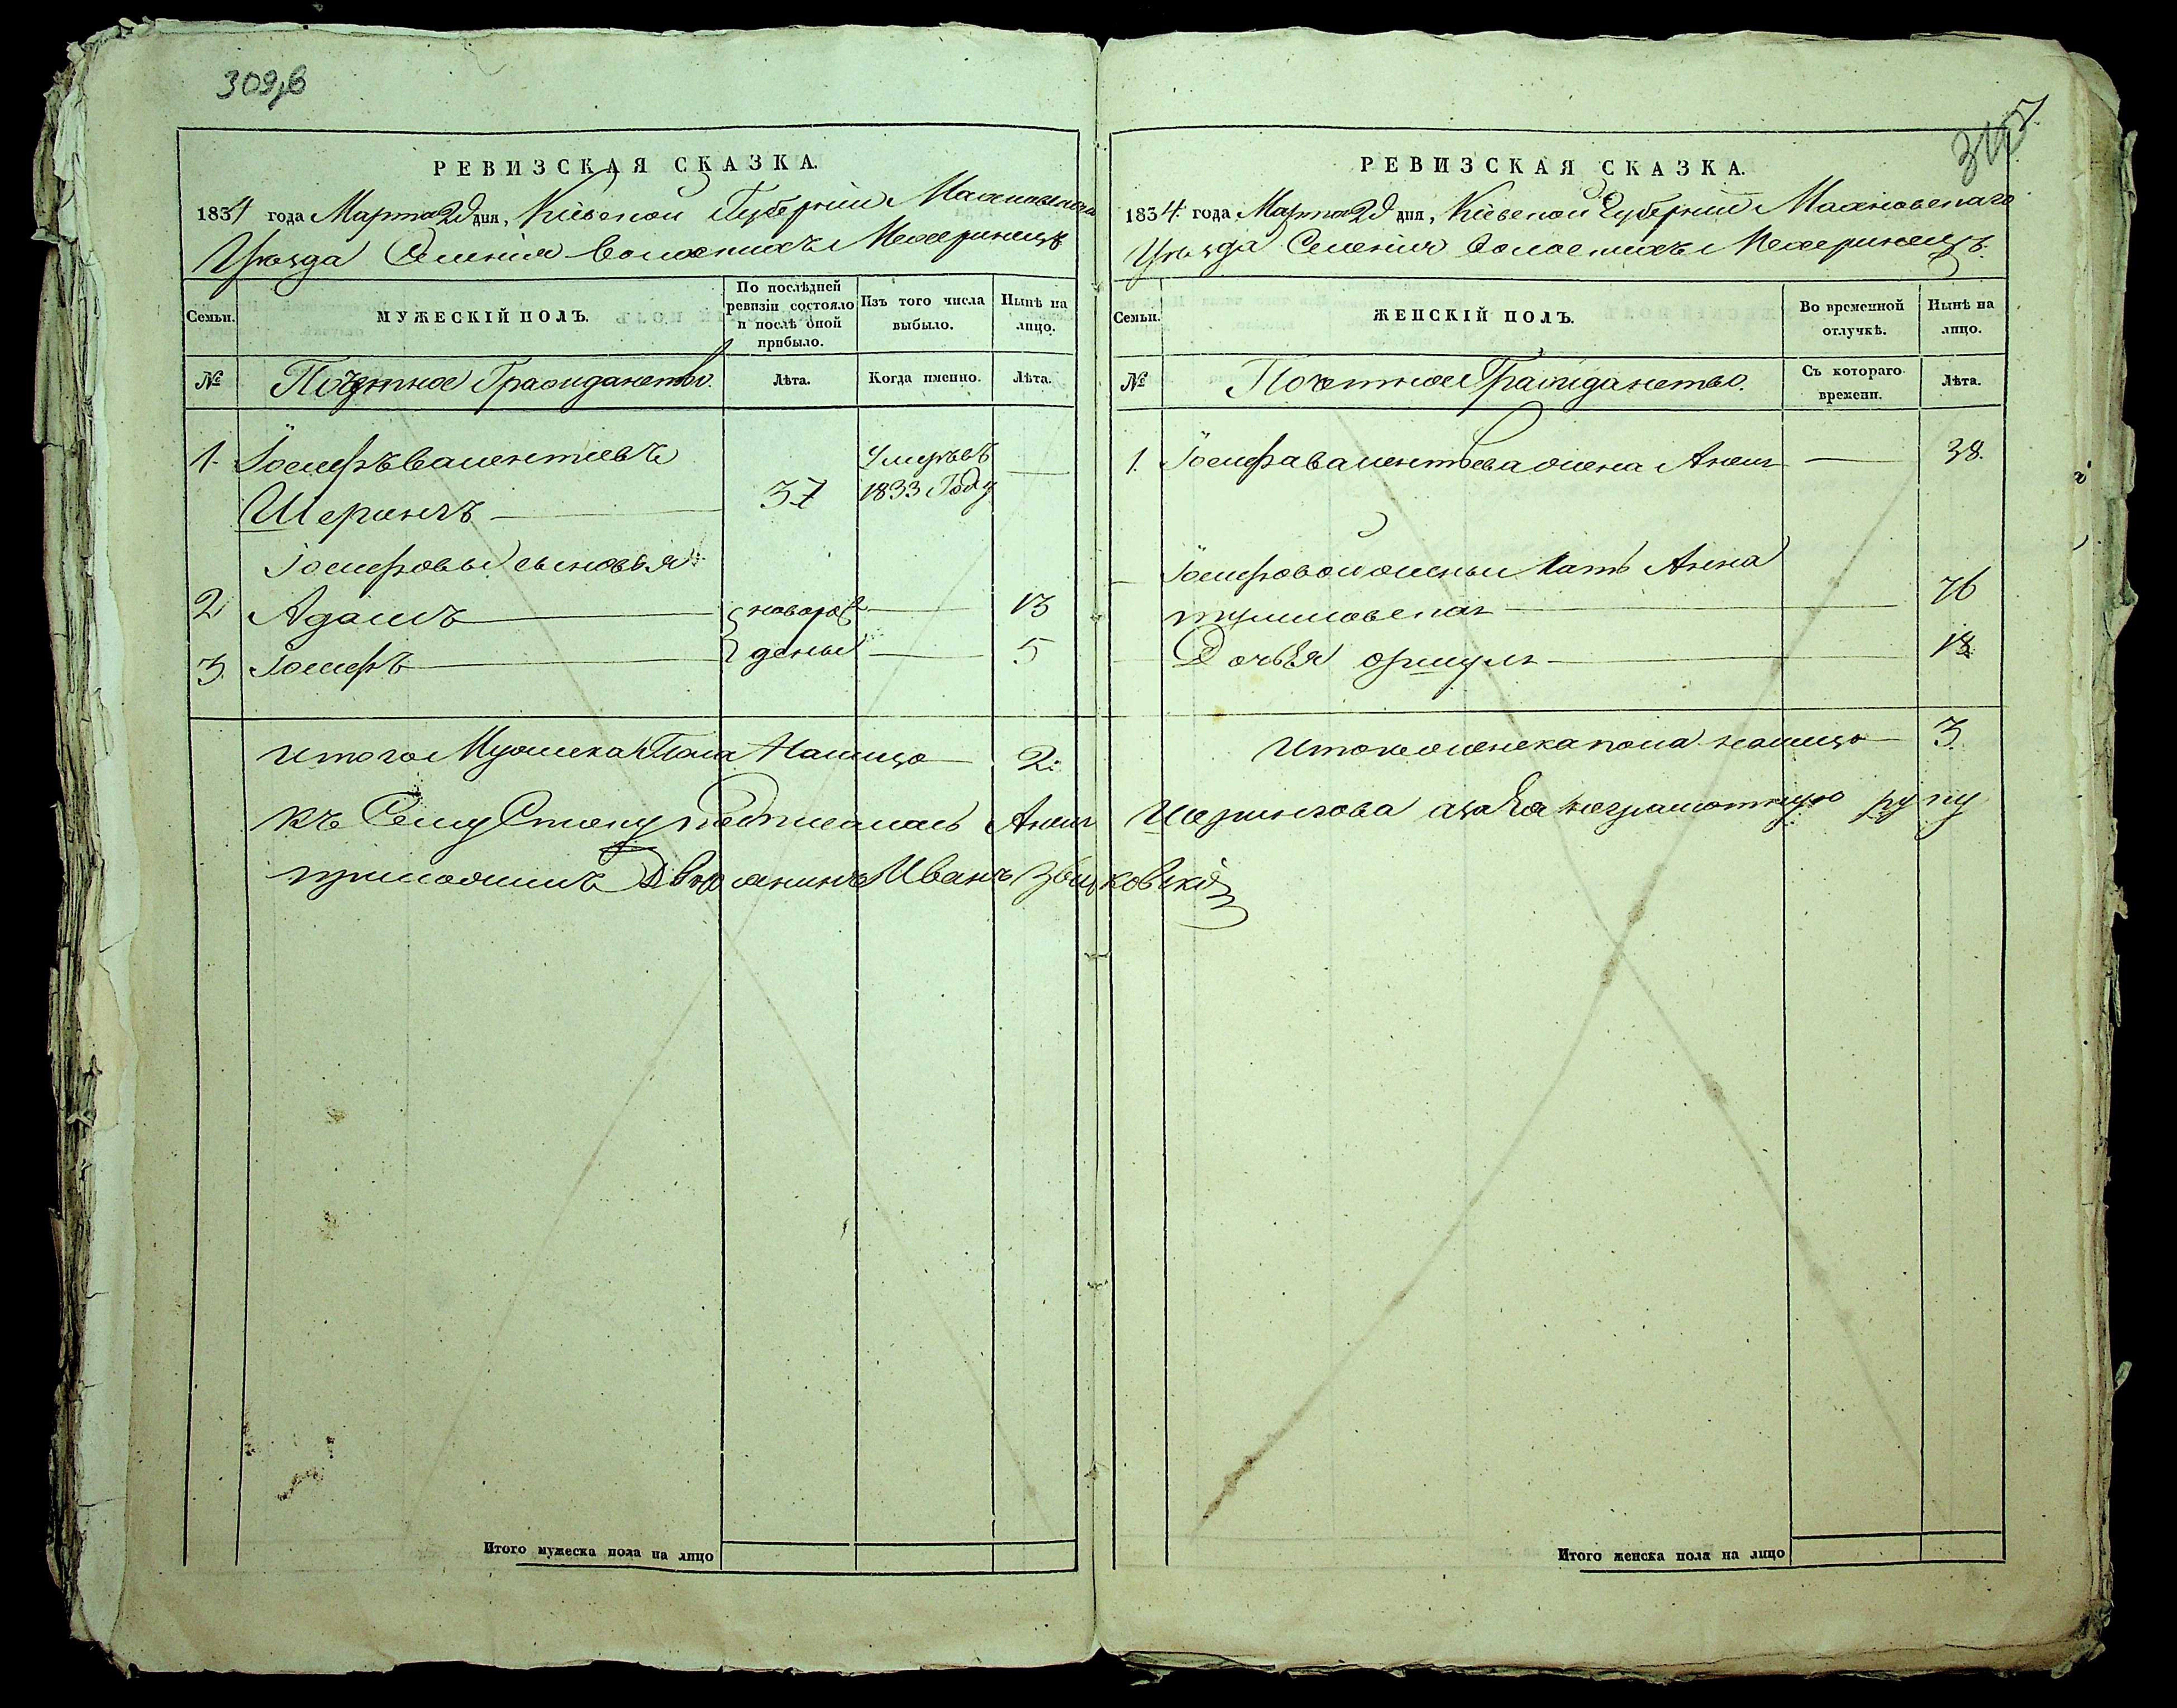 309
РЕВИЗСКАЯ СКАЗКА.
1834 года Марта 29 дня, Кіевской Губерніи Махновскаго
Уѣзда Селенія
Семьи.
МУЖЕСКІЙ ПОЛЪ.
По послѣдней ревизіи состояло и послѣ оной прибыло.
Изъ того числа выбыло.
Нынѣ на лицо.
№
Почетное Гражданство.
Лѣта.
Когда именно.
Лѣта.
1. Іосифъ валентіевъ
Шерингъ 37 умеръ въ 1833 Году
Іосифовы сыновья
2 Адамъ новорож 13
3. Іосифъ деные 5
итого Мужеска Пола Налицо 2.
къ Сему Списку подписалась Анеля Шерингова а за Ея неграмотную руку
приложилъ Дворянинъ Иванъ
Итого мужеска пола на лицо
РЕВИЗСКАЯ СКАЗКА.
1834 года Марта 29 дня, Кіевской Губерніи Махновскаго
Уѣзда Селенія
Семьи.
ЖЕНСКІЙ ПОЛЪ.
Во временной отлучкѣ.
Нынѣ на лицо.
№
Почетное Гражданство.
Съ котораго времени.
Лѣта.
1. Іосифа валентьева жена Анеля 38.
Іосифовой жены Мать Анна
76
Дочь Ея 13
Итого женска пола налицо 3.
Итого женска пола на лицо